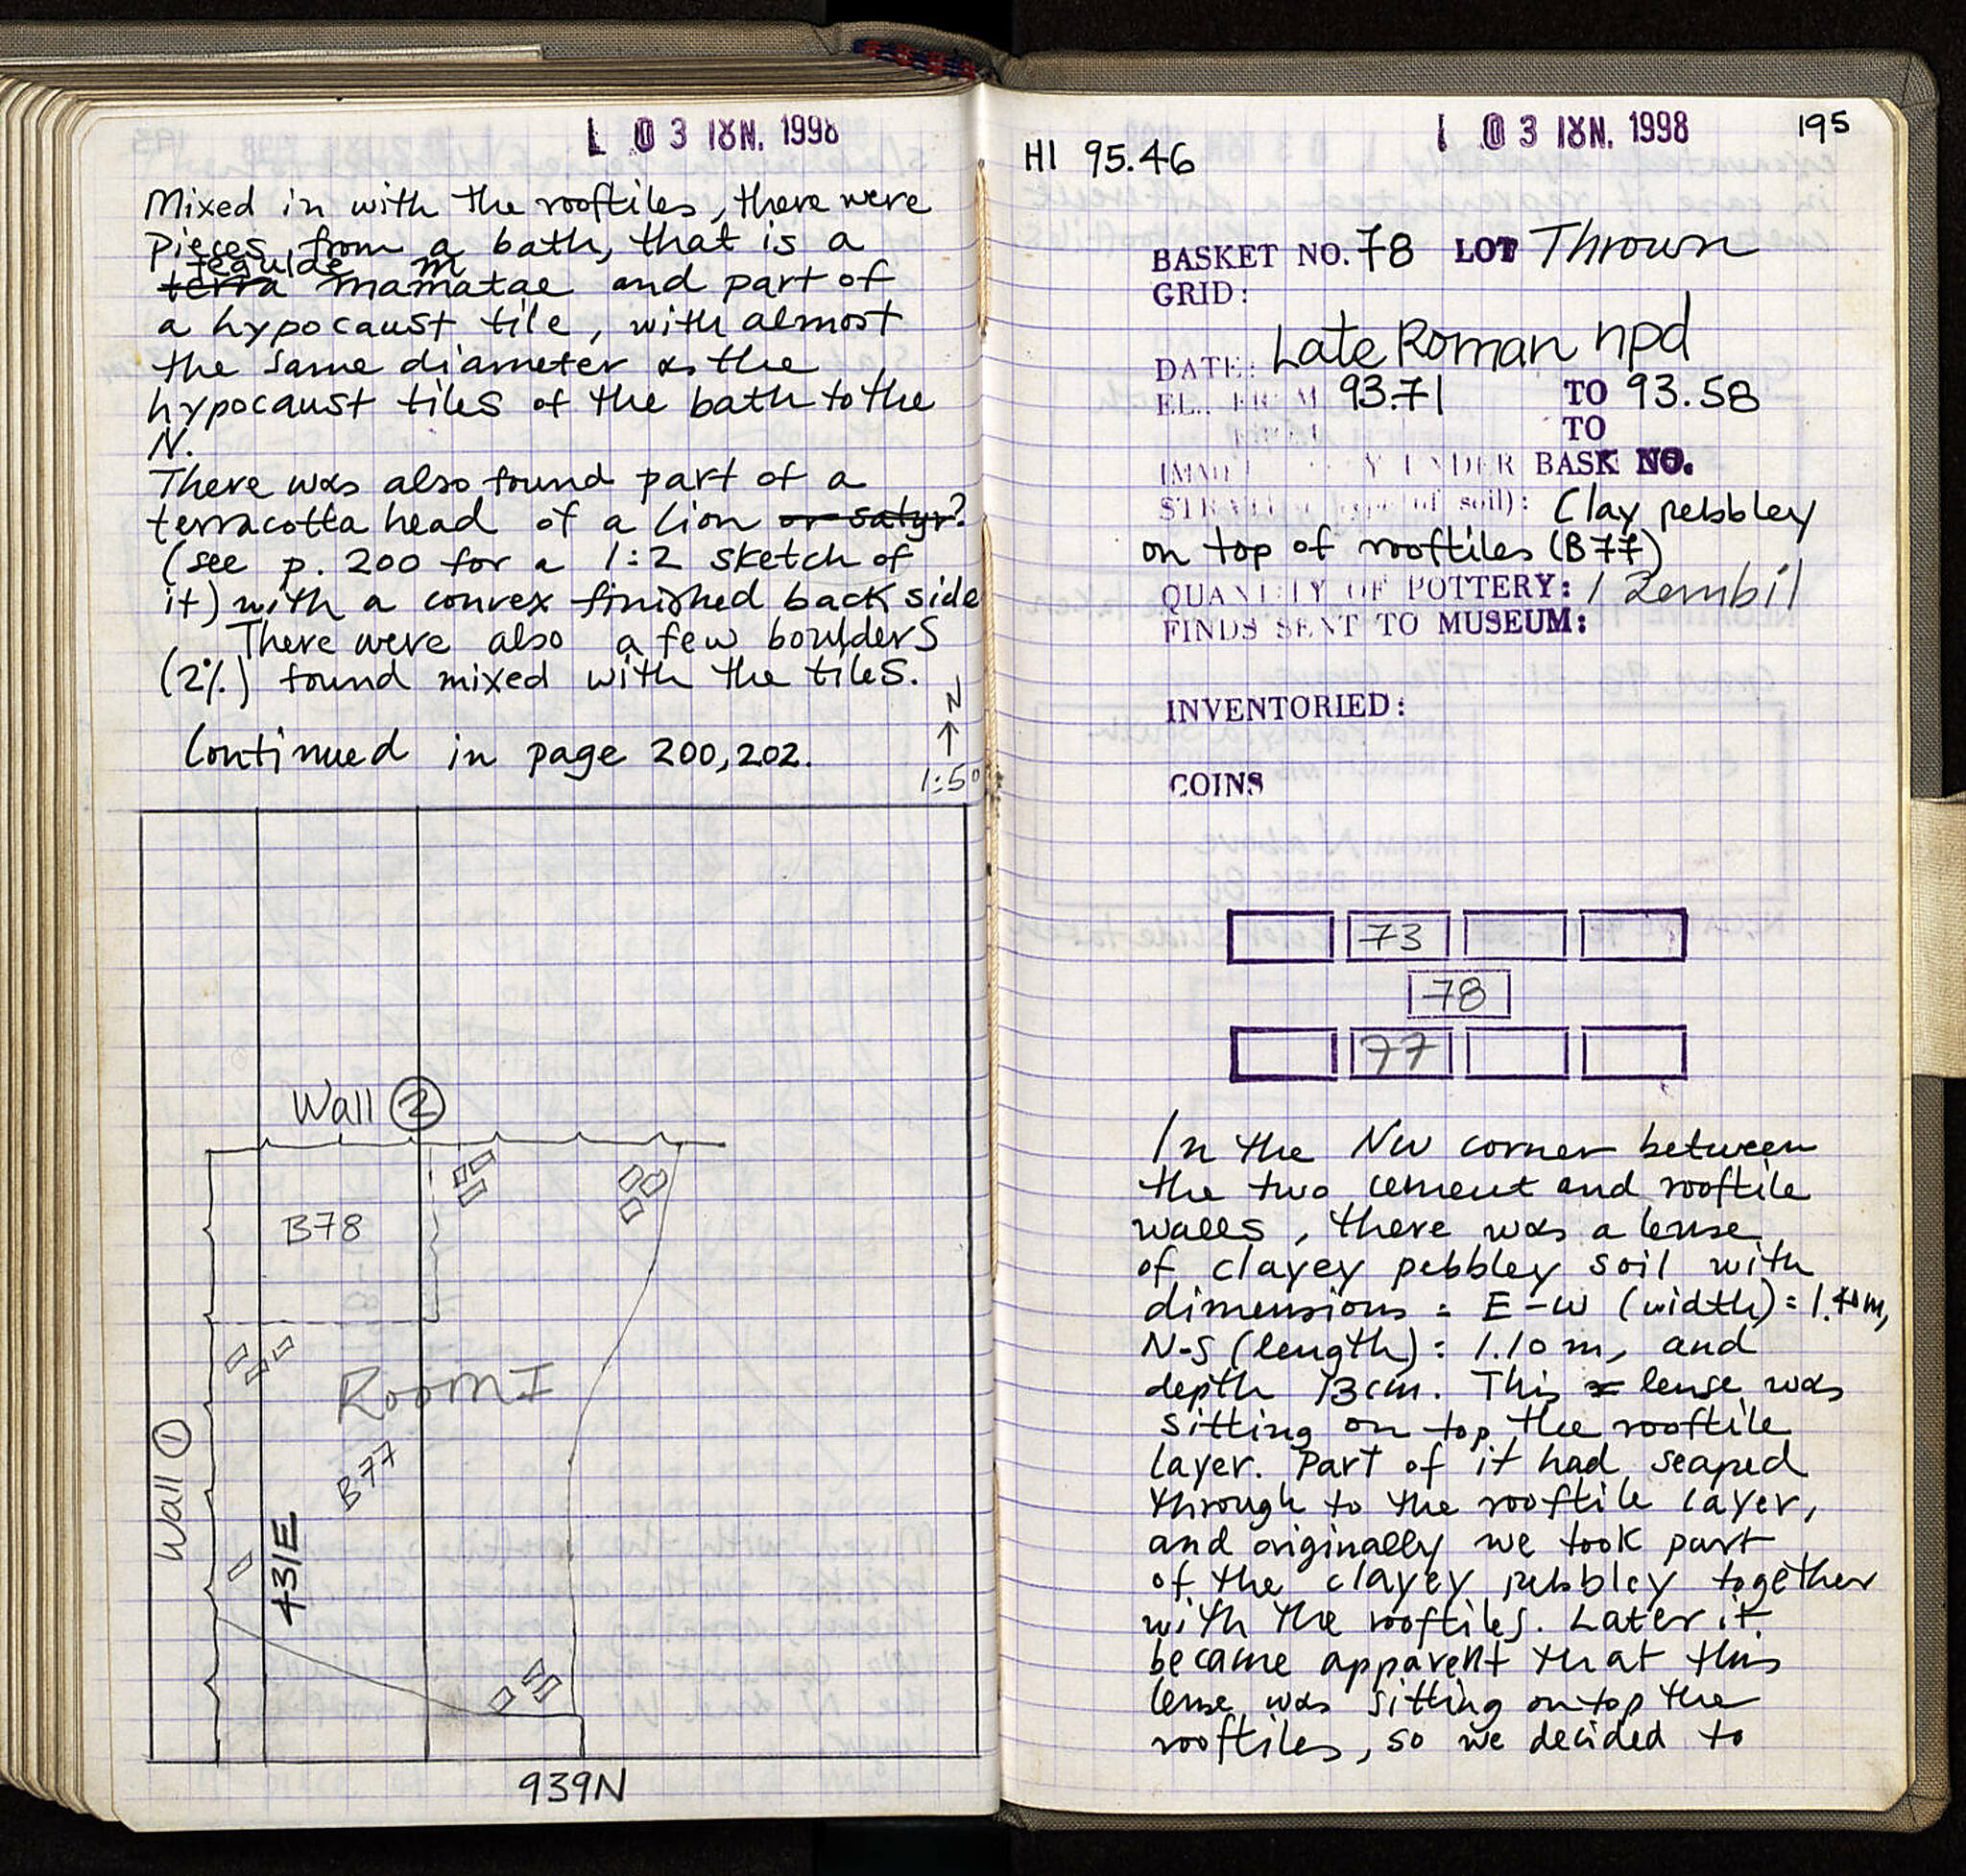 03 ΙΟΥΝ. 1998
Mixed in with the rooftiles, there were
pieces from a bath, that is a
tegulae m
terra mamatae and part of
a hypocaust tile, with almost
the same diameter as the
hypocaust tiles of the bath to the
N.
There was also found part of a
terracotta head of a lion or satyr?
(see p. 200 for a 1:2 sketch of
it) with a convex finished back side
There were also a few boulders
(2%) found mixed with the tiles.
Continued in page 200, 202.
N
1:50
Wall 2
B78
Room I
B77
Wall 1
431E
939N
03 ΙΟΥΝ. 1998
195
HI 95.46
BASKET NO. 78 LOT Thrown
GRID:
DATE: Late Roman npd
EL. FROM 93.71 TO 93.58
TO
UNDER BASK NO.
soil): Clay pebbley
on top of rooftiles (B77)
QUANTITY OF POTTERY: 1 Zembil
FINDS SENT TO MUSEUM:
INVENTORIED:
COINS
73
78
77
In the NW corner between
the two cement and rooftile
walls, there was a lense
of clayey pebbley soil with
dimensions = E-W (width) = 1.40m,
N-S (length): 1.10 m, and
depth 13cm. This lense was
sitting on top the rooftile
layer. Part of it had seaped
through to the rooftile layer,
and originally we took part
of the clayey pebbley together
with the rooftiles. Later it
became apparent that this
lense was sitting on top the
rooftiles, so we decided to